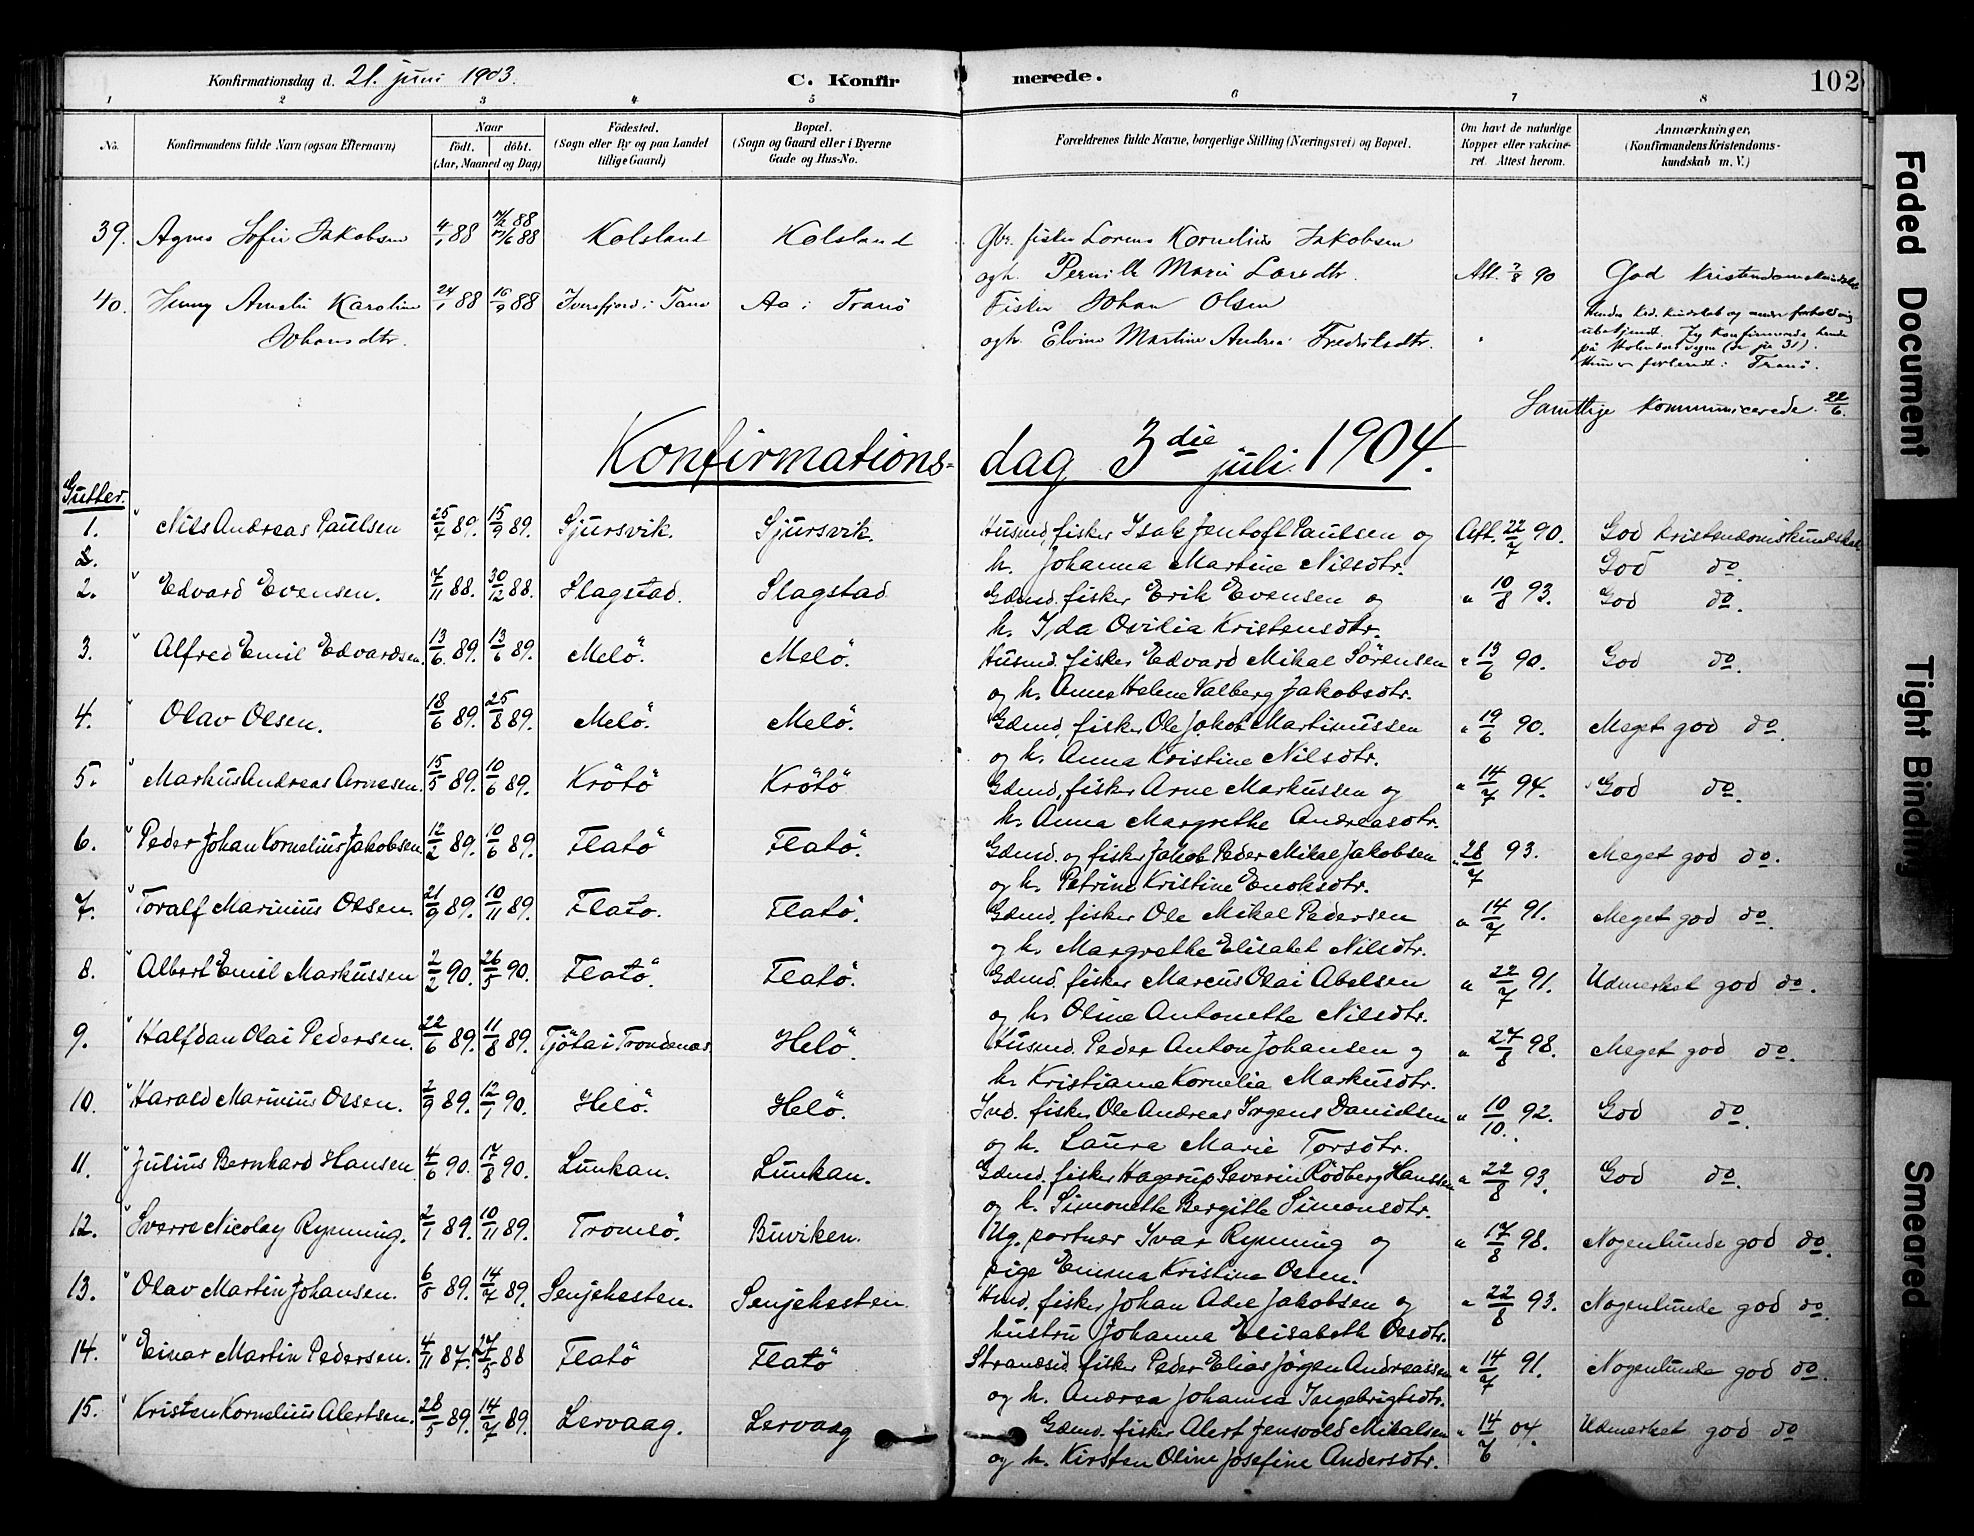 Konfirmationsdag d. 21. juni 1903. C. Konfir merede. 102
1 2 3 4 5 6 7 8
No. Konfirmandens fulde Navn (ogsaa Efternavn) Naar født. døbt. (Aar, Maaned og Dag) Fødested. (Sogn eller By og paa Landet tillige Gaard) Bopæl. (Sogn og Gaard eller i Byerne Gade og Hus-No. Forældrenes fulde Navne, borgerlige Stilling (Næringsvei) og Bopæl. Om havt de naturlige Kopper eller vakcineret. Attest herom. Anmærkninger, (Konfirmandens Kristendomskundskab m. V.)
39. Agnes Sofie Jakobsen 4/1 88 88 88 Kolsland Kolsland Gbr. fisker Lorens Kornelius Jakobsen
og h. Pernille Marie Larsdtr. Att. 7/8 90 God Kristendomskundskab
40. Jenny Amalie Karoline 24/1 88 16/9 88 Aa i Tranö Fisker Johan Olsen
Johansdtr. og h. Elvine Martine Andrea Fredriksdtr.
Samtlige kommunicerede 22/6.
Konfirmations- dag 3die juli 1904.
Gutter.
1. Nils Andreas Paulsen 25/7 89. 15/9 89. Gjursvik. Gjursvik. Husmd. fisker Isak Jentoft Paulsen og Att. 22/7 90. God Kristendomskundskab
2. h. Johanna Martine Nilsdtr. God do.
2. " Edvard Evensen. 7/11 88. 30/12 88. Slagstad. Slagstad Gdmd. fisker Erik Evensen og " 10/8 93. God do.
h. Ida Ovilia Kristensdtr.
3. " Alfred Emil Edvardsen. 13/6 89. 13/6 89. Melö. Melö. Husmd. fisker Edvard Mikal Sörensen " 13/6 90. God do.
og h. Anne Helene Valberg Jakobsdtr.
4. " Olav Olsen. 18/6 89. 25/8 89. Melö. Melö. Gdmd. fisker Ole Jakob Martinussen " 19/6 90. Meget god do.
og h. Anna Kristine Nilsdtr.
5. " Markus Andreas Arnesen. 15/5 89. 10/6 89. Krötö Krötö Gdmd. fisker Arne Markussen og " 14/7 94. God do.
h. Anna Margrethe Andreasdtr.
6. " Peder Johan Kornelius Jakobsen 12/2 89. 10/6 89. Flatö Flatö. Gdmd. og fisker Jakob Peder Mikal Jakobsen " 28/7 93. Meget god do.
og h. Petrine Kristine Enoksdtr.
7. " Toralf Marinius Olsen. 21/9 89. 10/11 89. Flatö. Flatö. Gdmd. fisker Ole Mikal Pedersen " 14/7 91. Meget god do.
og h. Margrethe Elisabet Nilsdtr.
8. " Albert Emil Markussen 2/2 90. 26/5 90. Flatö. Flatö. Gdmd. fisker Marcus Olai Abelsen " 22/7 91. Udmerket god do.
og h. Oline Antonette Nilsdtr.
9. " Halfdan Olai Pedersen. 22/6 89. 11/8 89. Tjöta i Trondenæs Helö. Husmd. Peder Anton Johansen og " 27/8 98. Meget god do.
h. Kristiane Kornelia Markusdtr.
10. " Harald Marinius Olsen. 2/9 89. 12/1 90. Helö. Helö. Ind. fisker Ole Andreas Irgens Danielsen " 10/10 92. God do.
og h. Laura Marie Torsdtr.
11. " Julius Bernhard Hansen 4/6 90. 17/8 90. Lunkan. Lunkan. Gdmd. fisker Hagerup Severin Rödberg Hanssen " 22/8 93. God do.
og h. Simonette Bergitte Simonsdtr.
12. " Sverre Nicolay Rynning. 2/1 89. 10/11 89. Tromsö. Buviken. Ug. Ivar Rynning og " 17/8 98. Nogenlunde god do.
pige Emma Kristine Olsen.
13. " Olav Martin Johansen. 6/5 89. 14/7 89. Senjehesten. Senjehesten. Hmd. fisker Johan Adel Jakobsen og " 22/8 93. Nogenlunde god do
hustru Johanna Elisabeth Olsdtr.
14. " Einar Martin Pedersen. 4/11 87. 27/5 88 Flatö Flatö Strandsid. fisker Peder Elias Jörgen Andreassen " 14/7 91. Nogenlunde god do.
og h. Andrea Johanna Ingebrigtsdtr.
15. " Kristen Kornelius Alertsen. 28/5 89. 14/7 89. Lervaag. Lervaag Gdmd. fisker Alert Jensvold Mikalsen " 14/6 04. Udmerket god do
og h. Kirsten Oline Josefine Andersdtr.
Faded Document
Tight Binding
Smeared